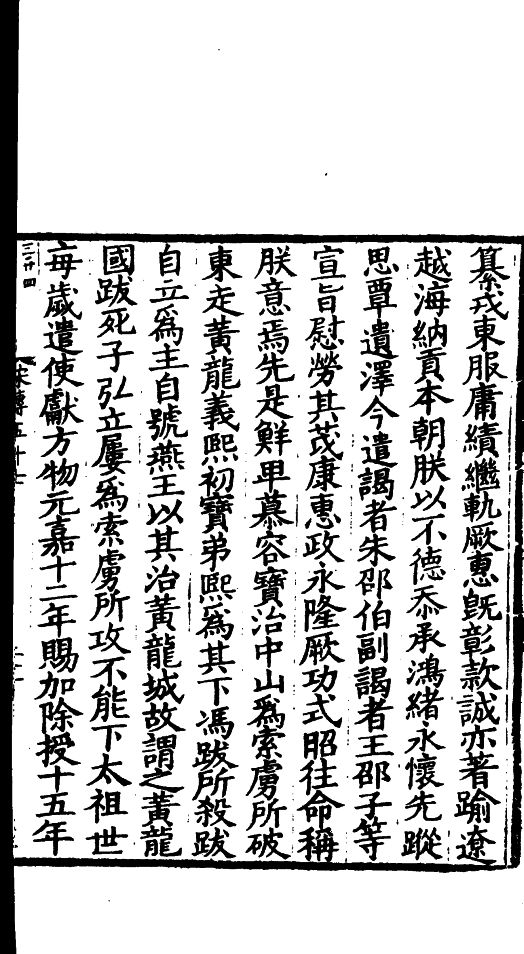 纂戎東服庸績繼軌厥惠旣彰款誠亦著踰遼
越海納貢本朝朕以不德忝承鴻緒永懷先蹤
思覃遺澤今遣謁者朱邵伯副謁者王邵子等
宣旨慰勞其茂康惠政永隆厥功式昭往命稱
朕意焉先是鮮卑慕容寶治中山爲索虜所破
東走黃龍義熙初寶弟熙爲其下馮跋所殺跋
自立爲主自號燕王以其治黃龍城故謂之黃龍
國跋死子弘立屢爲索虜所攻不能下太祖世
每歲遣使獻方物元嘉十二年賜加除授十五年
宋傳五十七